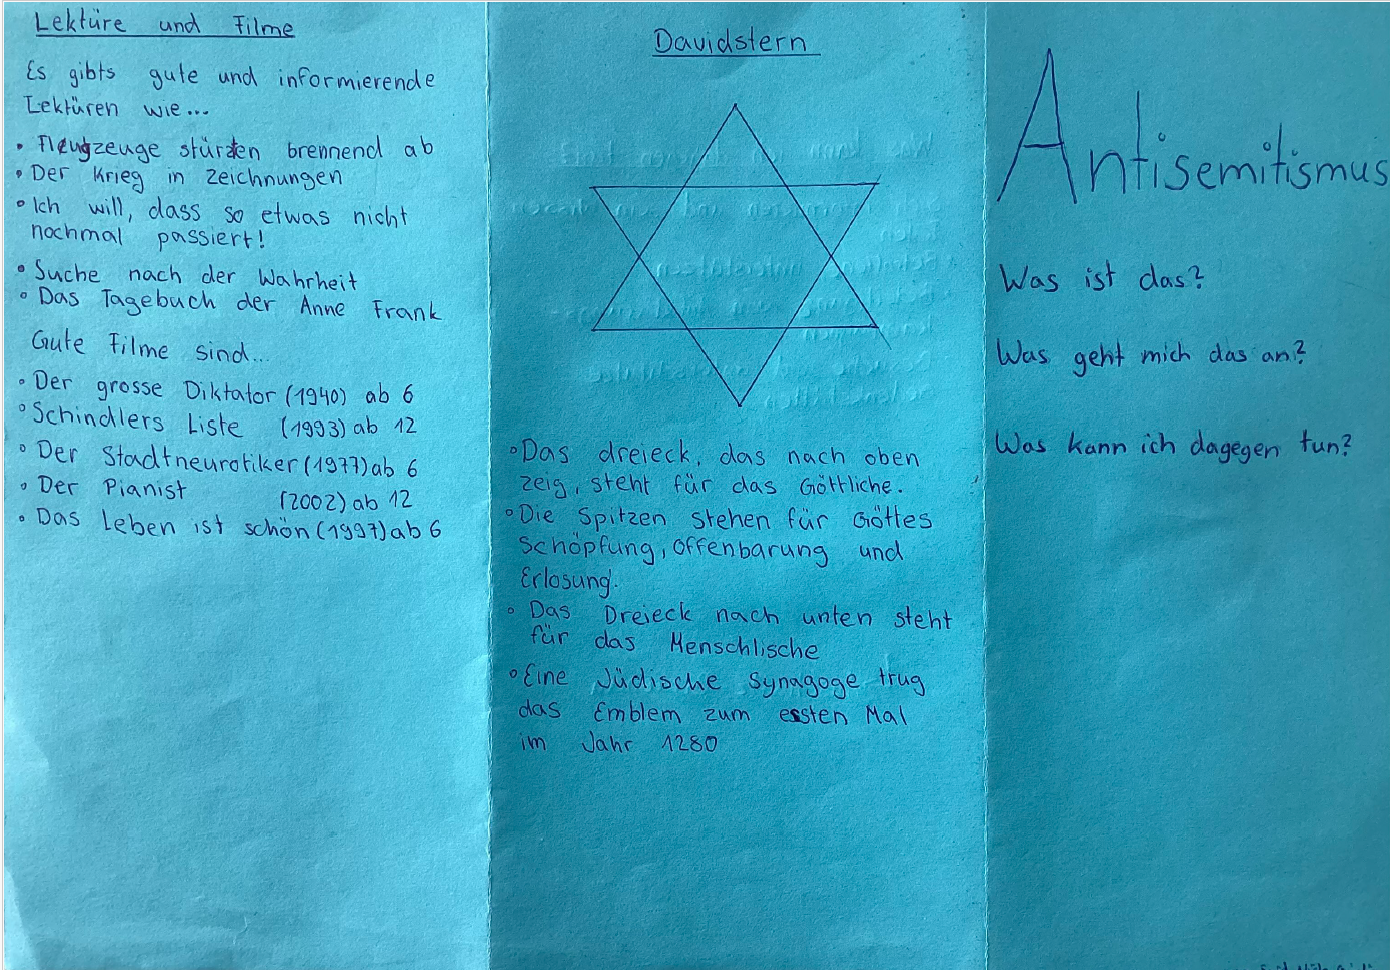 Lektüre und Filme
Es gibts gute und informierende
Lektüren wie...
• Fleugzeuge stürzten brennend ab
• Der Krieg in Zeichnungen
• Ich will, dass so etwas nicht
nochmal passiert!
• Suche nach der Wahrheit
• Das Tagebuch der Anne Frank
Gute Filme sind...
• Der grosse Diktator (1940) ab 6
• Schindlers Liste (1993) ab 12
• Der Stadtneurotiker (1977) ab 6
• Der Pianist (2002) ab 12
• Das Leben ist schön (1997) ab 6
Davidstern
• Das dreieck, das nach oben
zeig, steht für das Göttliche.
• Die Spitzen stehen für Göttes
Schöpfung, Offenbarung und
Erlosung.
• Das Dreieck nach unten steht
für das Menschlische
• Eine Jüdische Synagoge trug
das Emblem zum ersten Mal
im Jahr 1280
Antisemitismus
Was ist das?
Was geht mich das an?
Was kann ich dagegen tun?